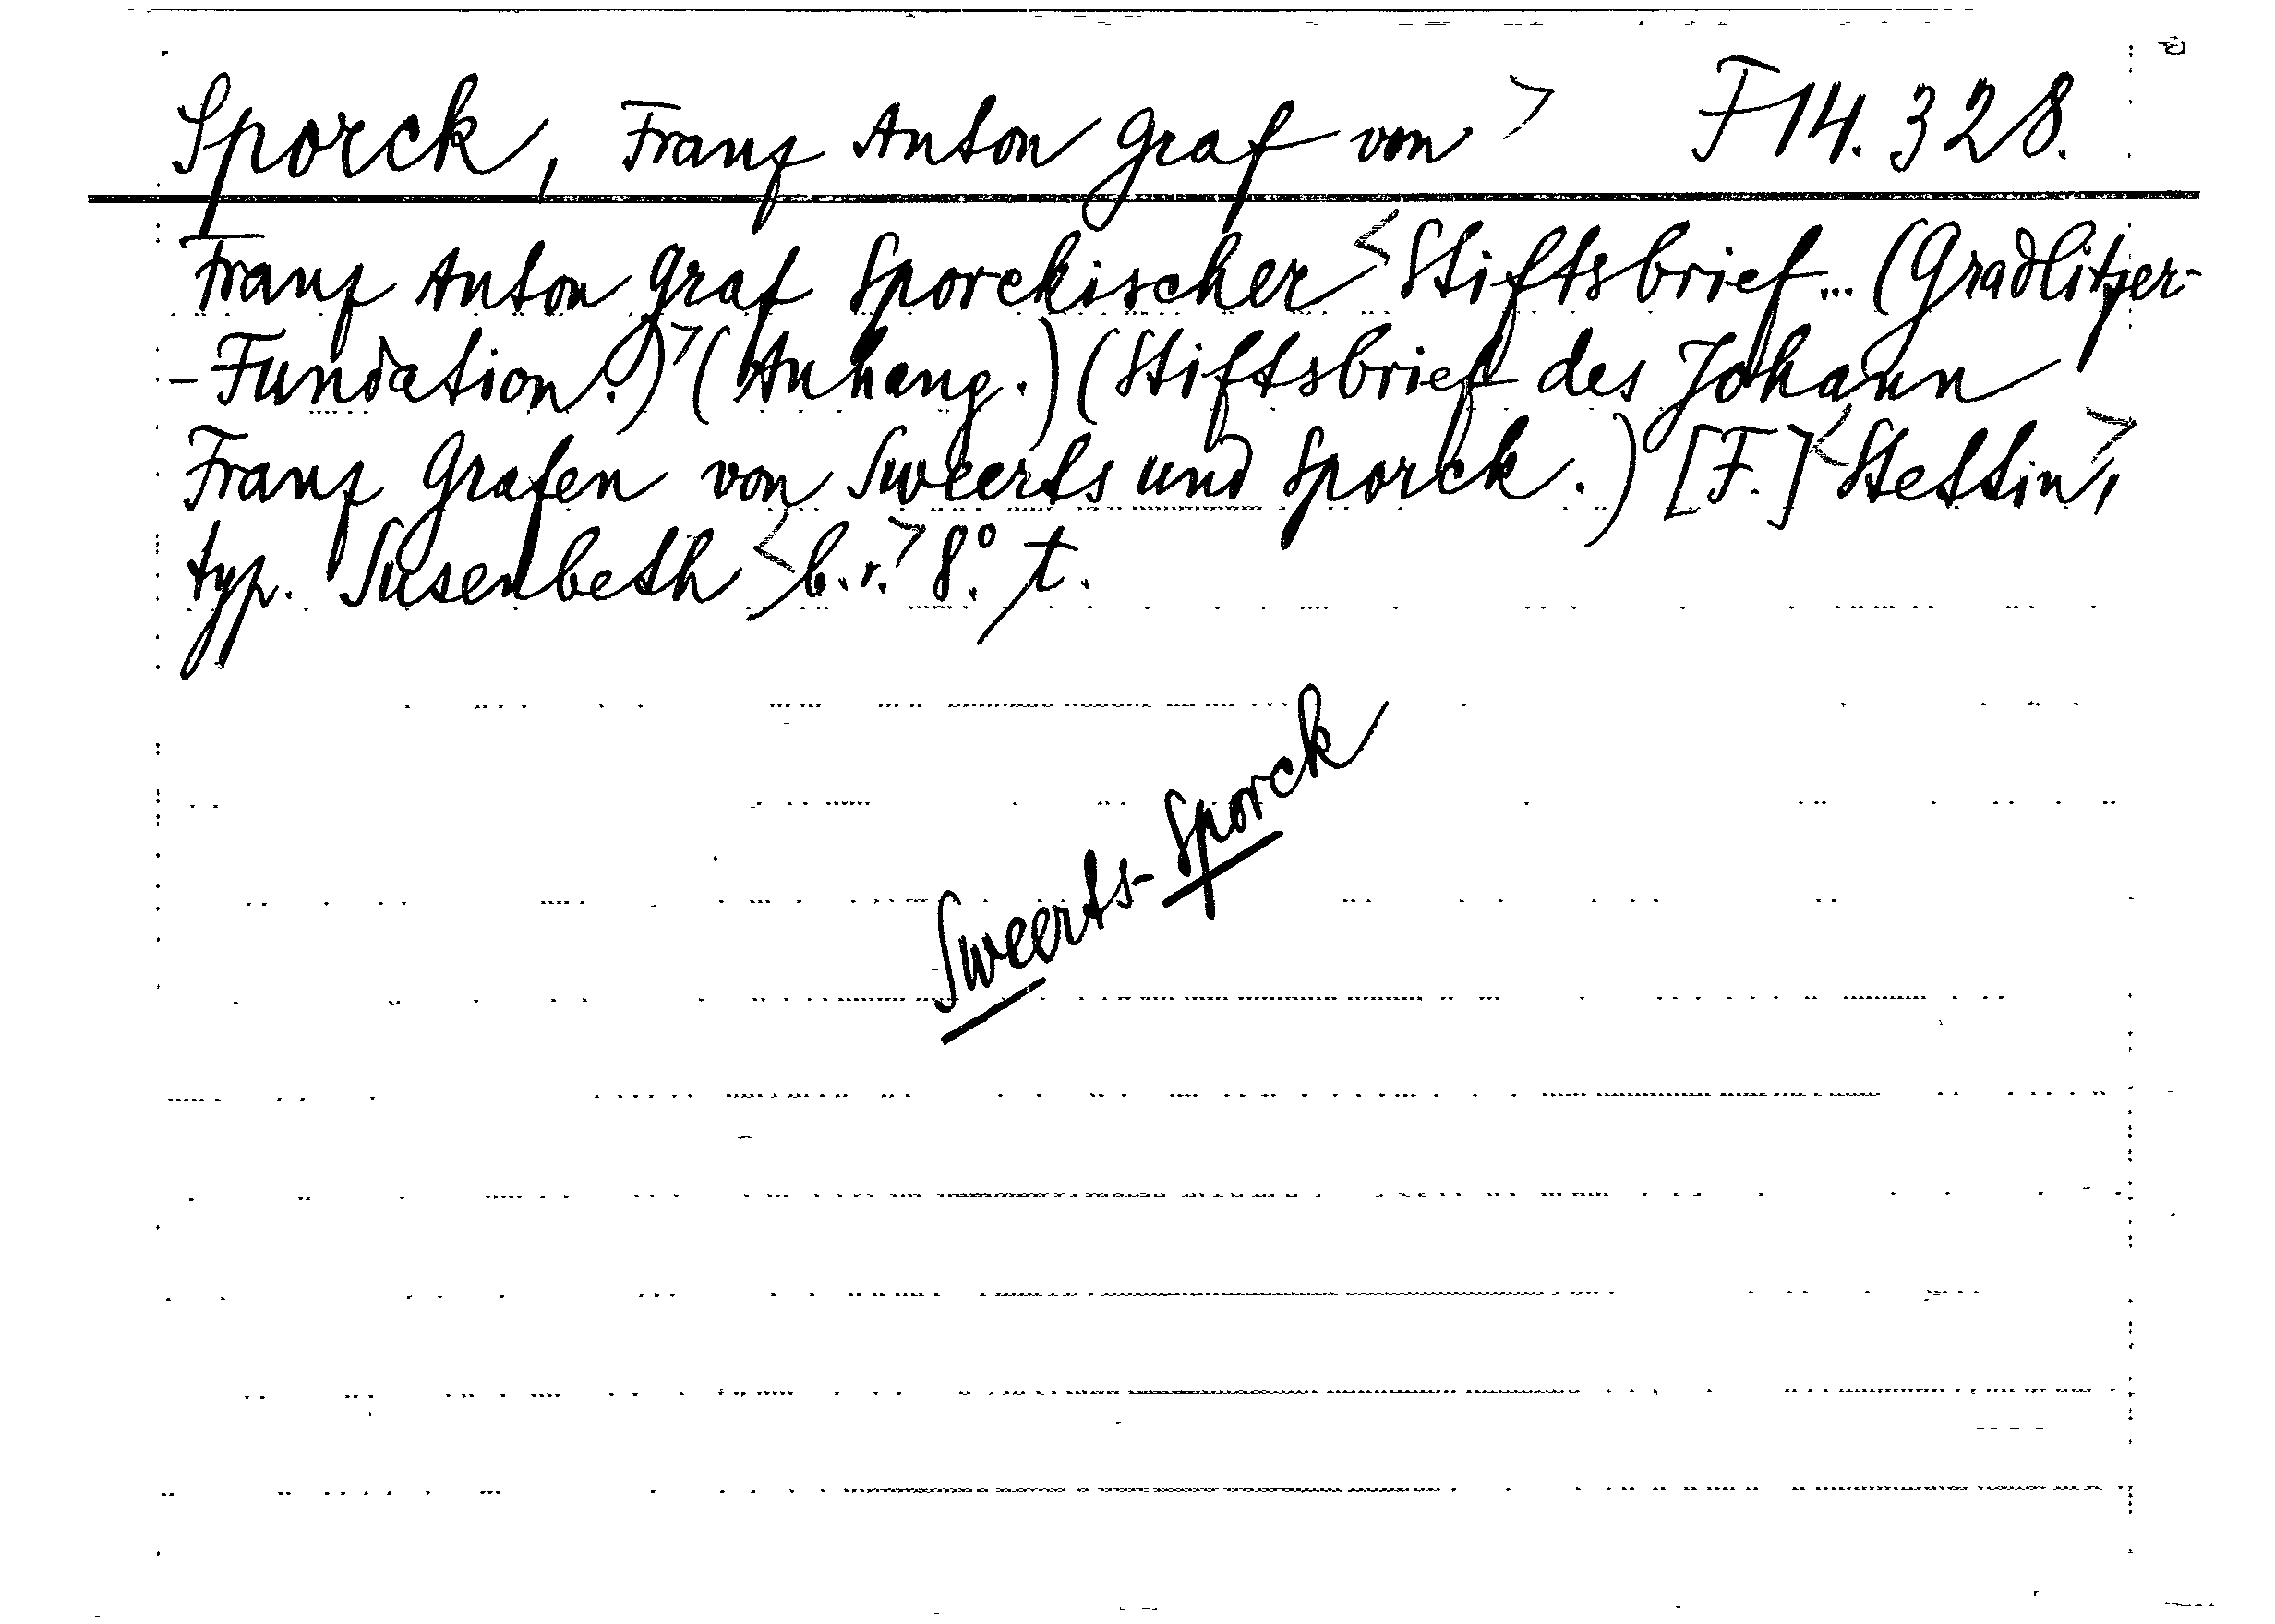 Sporck, Franz Anton Graf von > F 14.328.
Franz Anton Graf Sporckischer < Stiftsbrief ... (Gradlitzer-
-Fundation.) > (Anhang.) (Stiftsbrief des Johann
Franz Grafen von Sweerts und Sporck.) [F.] < Stettin >,
typ. Susenbeth < b.r. > 8.° t.
Sweerts-Sporck